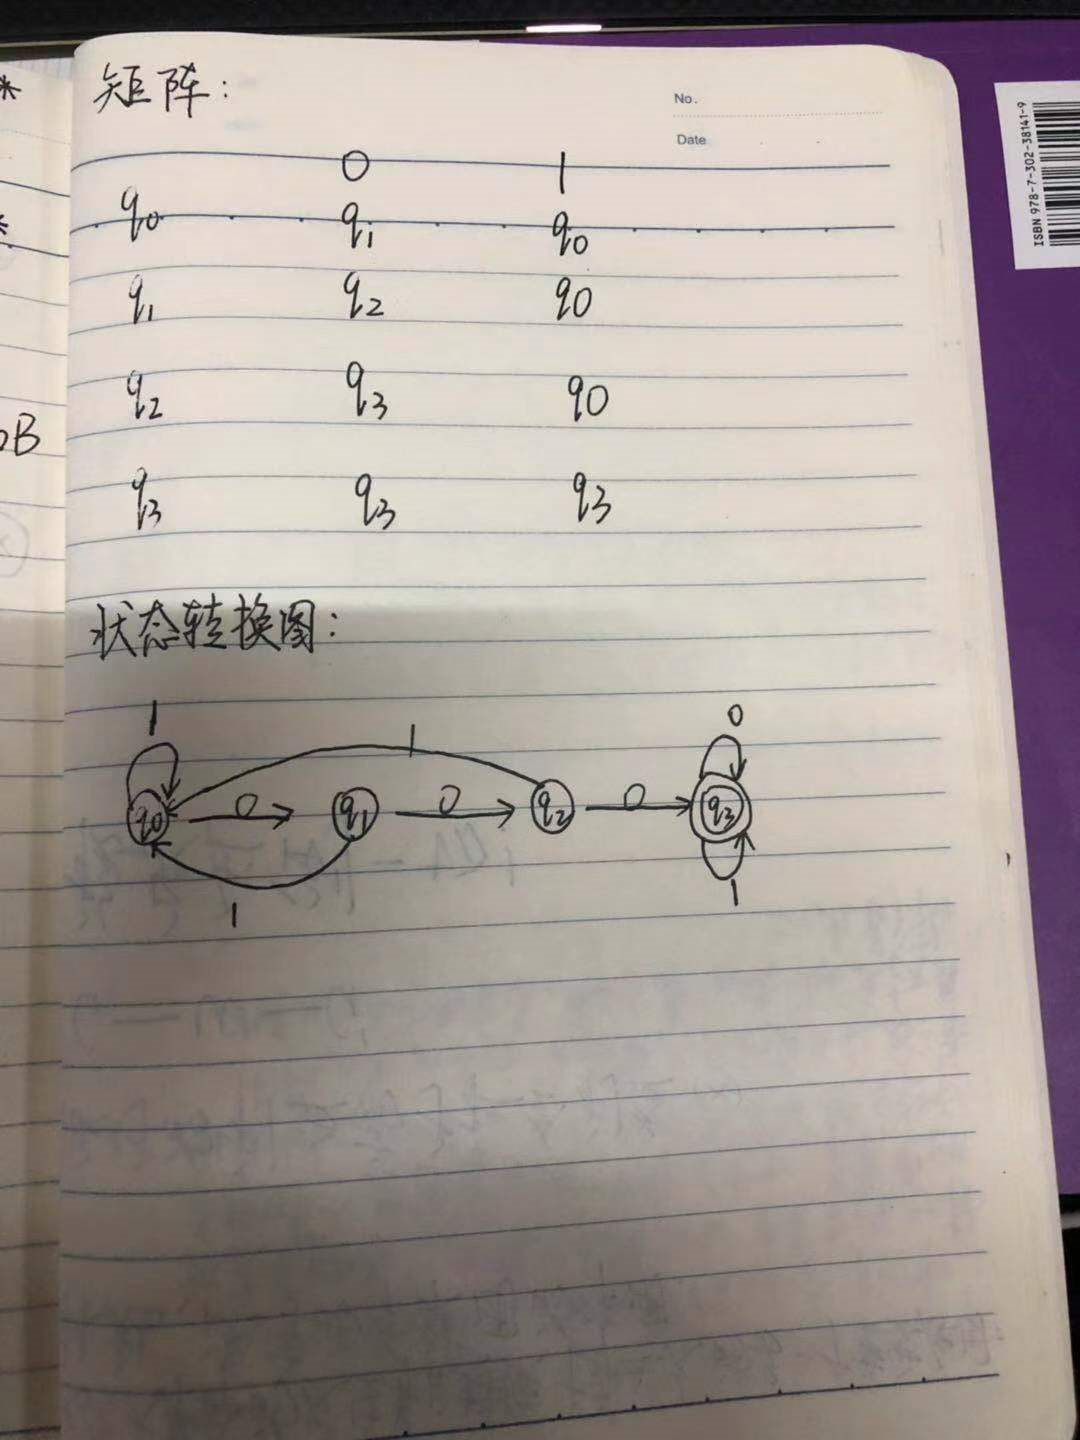 矩阵:
No.
Date
0 1
q0 q1 q0
q1 q2 q0
q2 q3 q0
q3 q3 q3
状态转换图:
1 1 0
q0 0 q1 0 q2 0 q3
1 1
*
B
ISBN 978-7-302-38141-9